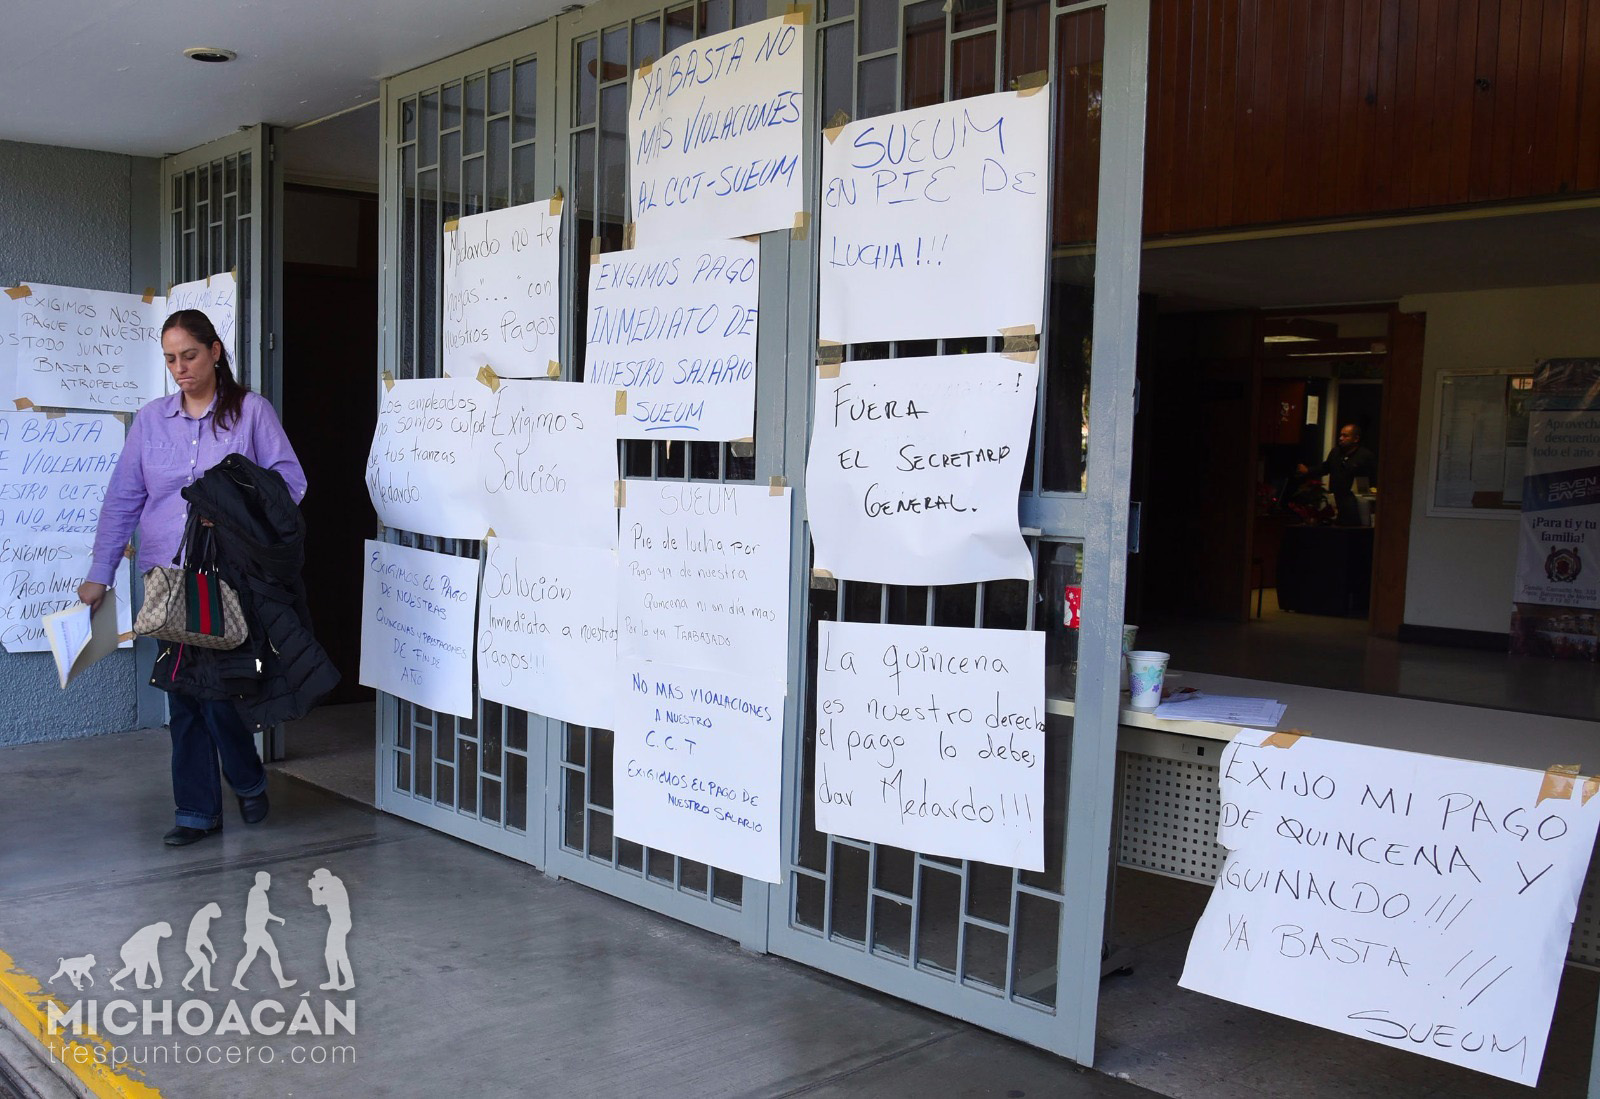 EXIGIMOS NOS
PAGUE LO NUESTRO
TODO JUNTO
BASTA DE
ATROPELLOS
AL C.C.T
EXIGIMOS EL
BASTA
VIOLENTAR
CCT-S
NO MAS
SR. RECTOR
EXIGIMOS
PAGO INME
DE NUESTR
QUIN
Medardo no te
hagas"... con
nuestros Pagos
YA BASTA NO
MAS VIOLACIONES
AL CCT-SUEUM
EXIGIMOS PAGO
INMEDIATO DE
NUESTRO SALARIO
SUEUM
SUEUM
EN PIE DE
LUCHA!!!
Los empleados
no somos culpa
de tus tranzas
Medardo
Exigimos
Solución
FUERA
EL SECRETARIO
GENERAL.
EXIGIMOS EL PAGO
DE NUESTRAS
QUINCENAS Y PRESTACIONES
DE FIN DE
AÑO
Solución
Inmediata a nuestros
Pagos!!!
SUEUM
Pie de lucha por
Pago ya de nuestra
Quincena ni un día mas
Por lo ya TRABAJADO
NO MAS VIOLACIONES
A NUESTRO
C.C.T
EXIGIMOS EL PAGO DE
NUESTRO SALARIO
La quincena
es nuestro derecho
el pago lo debe,
dar Medardo!!!
EXIJO MI PAGO
DE QUINCENA Y
AGUINALDO!!!
YA BASTA!!!
SUEUM
Aprovecha
descuento
todo el año
SEVEN
DAYS
¡Para ti y tu
familia!
MICHOACÁN
trespuntocero.com